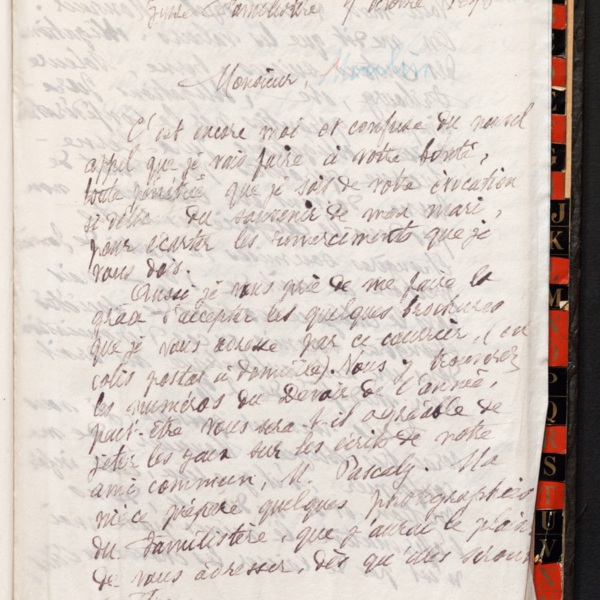 Guise Familistère 9 1896
Monsieur,
C'est encore moi et confuse du nouvel
appel que je vais faire à votre bonté,
toute pénétrée que je sois de votre évocation
si du souvenir de mon mari,
pour écarter les remerciements que je
vous dois.
Aussi je vous prie de me faire la
grâce d'accepter les quelques brochures
que je vous adresse par ce courrier, (en
colis postal à domicile). Vous y trouverez
les numéros du Devoir de l'année,
peut-être vous sera-t-il agréable de
jeter les yeux sur les écrits de notre
ami commun, M. Pascaly. Ma
nièce prépare quelques photographies
du Familistère, que j'aurai le plaisir
de vous adresser, dès qu'elles seront
J
K
M
P
Q
R
S
T
U
V